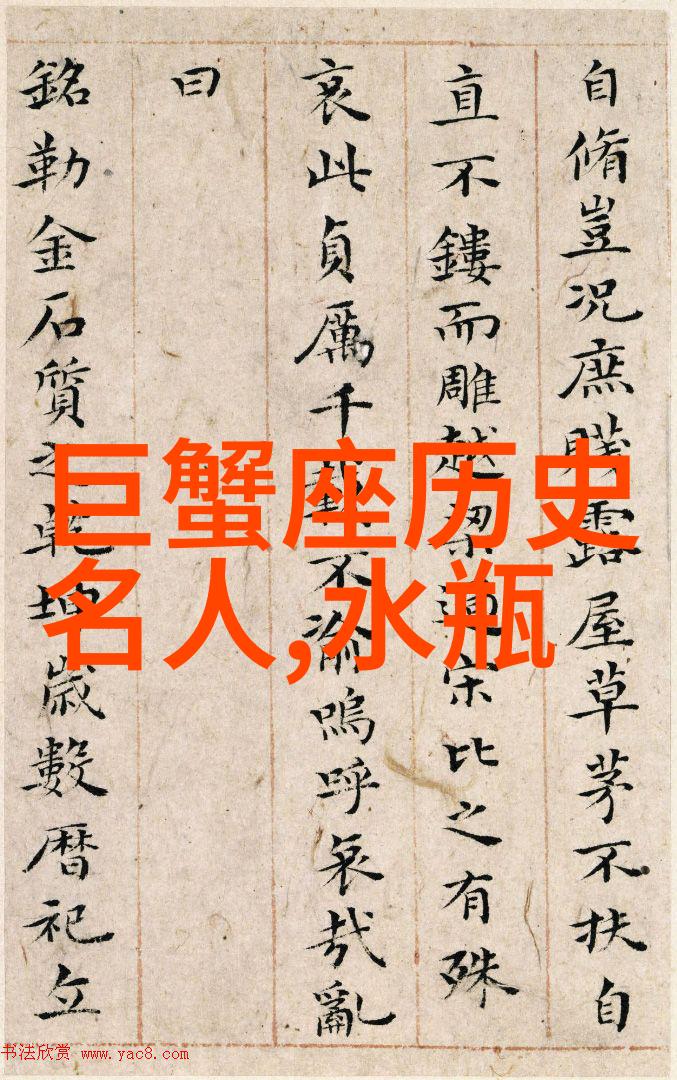 自脩豈況庶賤露屋草茅不扶自
直不鏤而雕越梁過宋比之有殊
哀此貞厲千載不渝嗚呼哀哉亂
曰
銘勒金石質之乾坤歲數曆祀立
巨蟹座历史
名人,水瓶
书法欣赏 www.yac8.com